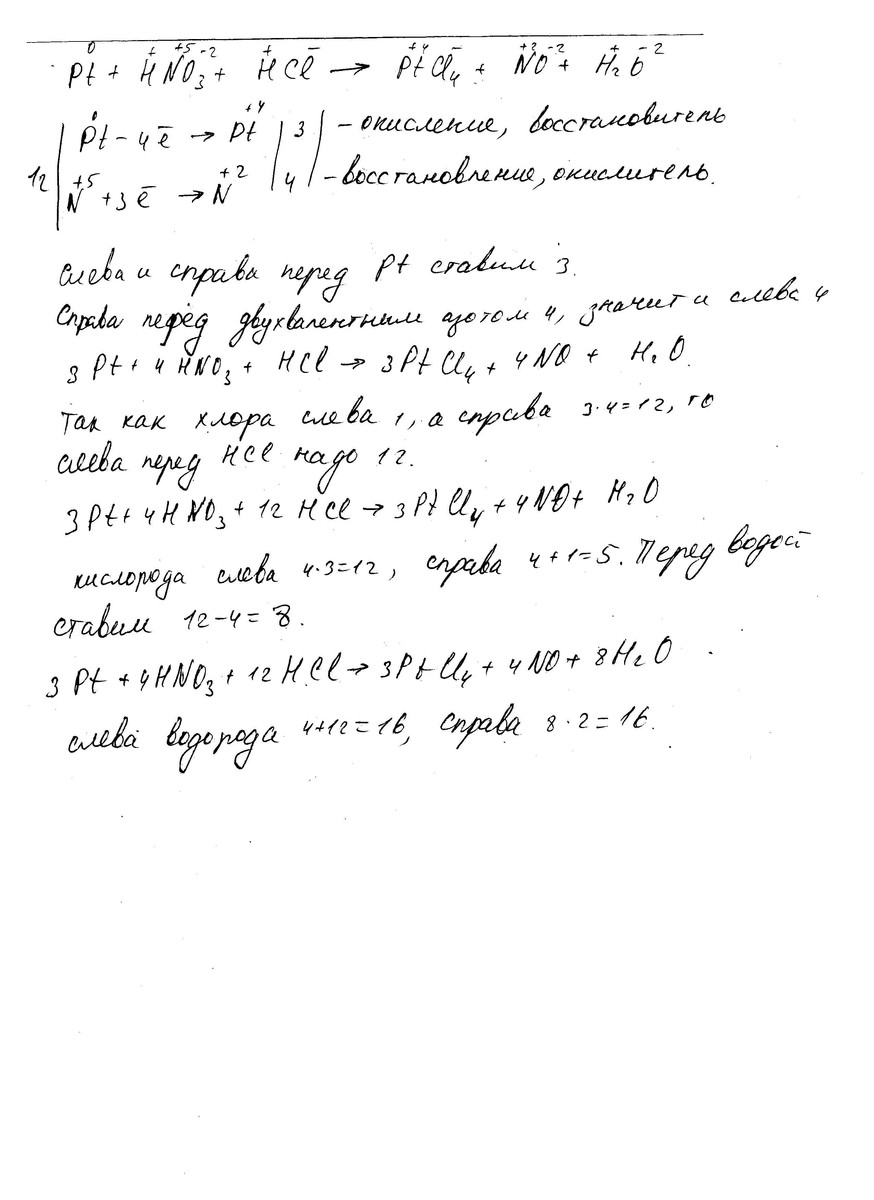 0 + +5 -2 + - +4 - +2 -2 + -2
Pt + HNO₃ + HCl → PtCl₄ + NO + H₂O
0 +4
Pt - 4ē → Pt | 3 | - окисление, восстановитель
12
+5 +2
N + 3ē → N | 4 | - восстановление, окислитель.
Слева и справа перед Pt ставим 3.
Справа перед двухвалентным азотом 4, значит и слева 4
3 Pt + 4 HNO₃ + HCl → 3 PtCl₄ + 4 NO + H₂O.
Так как хлора слева 1, а справа 3·4=12, то
слева перед HCl надо 12.
3 Pt + 4 HNO₃ + 12 HCl → 3 PtCl₄ + 4 NO + H₂O
кислорода слева 4·3=12, справа 4+1=5. Перед водой
ставим 12-4=8.
3 Pt + 4 HNO₃ + 12 HCl → 3 PtCl₄ + 4 NO + 8 H₂O
слева водорода 4+12=16, справа 8·2=16.